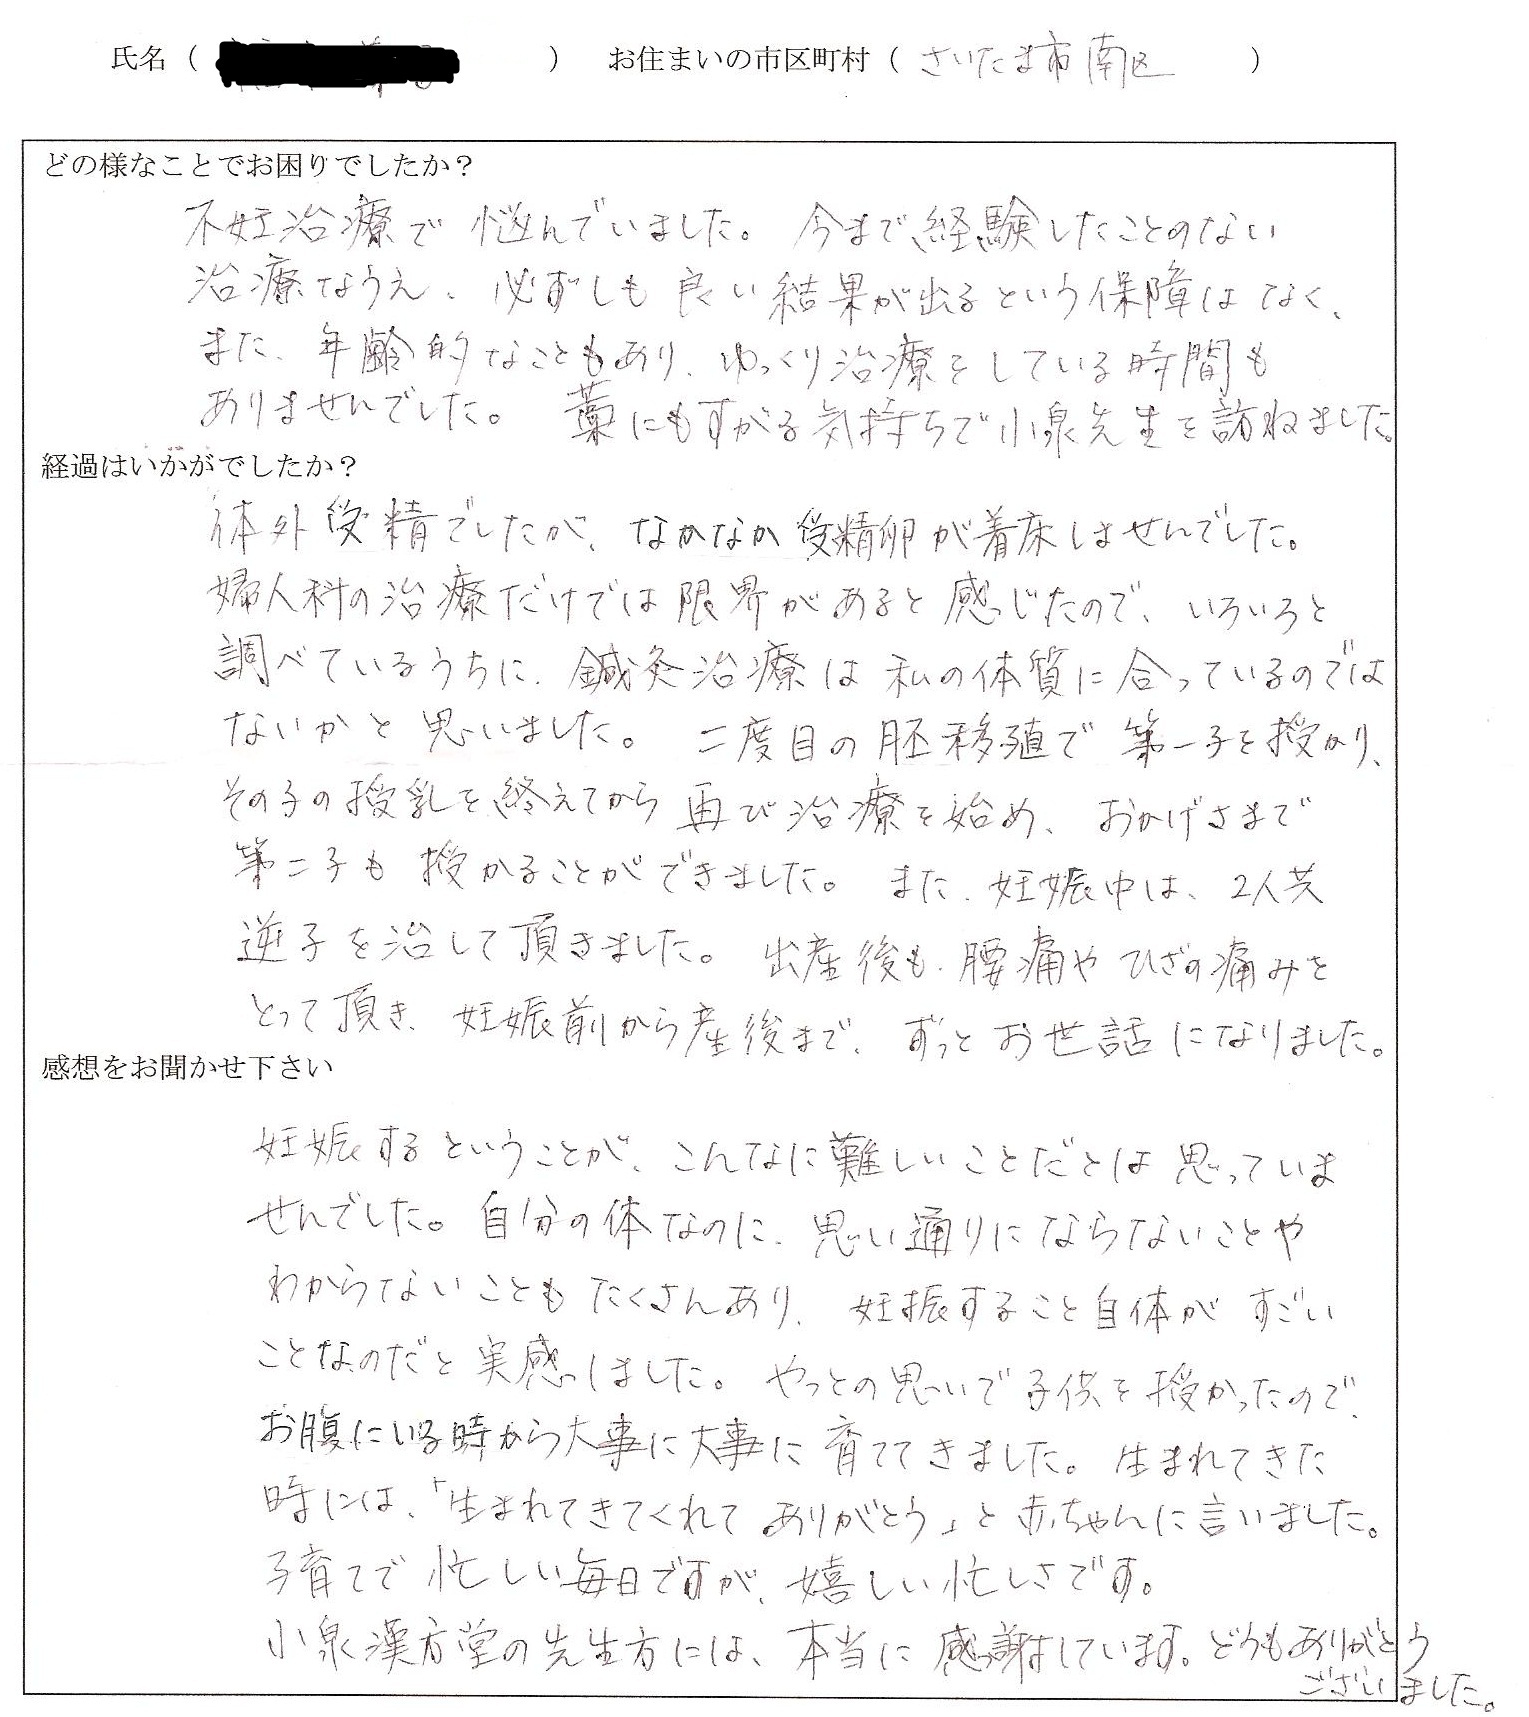 氏名（　　　　）　お住まいの市区町村（ さいたま市南区　　）
どの様なことでお困りでしたか？
不妊治療で悩んでいました。今まで経験したことのない
治療なうえ、必ずしも良い結果が出るという保障はなく、
また、年齢的なこともあり、ゆっくり治療をしている時間も
ありませんでした。藁にもすがる気持ちで小泉先生を訪ねました。
経過はいかがでしたか？
体外受精でしたが、なかなか受精卵が着床しませんでした。
婦人科の治療だけでは限界があると感じたので、いろいろと
調べているうちに、鍼灸治療は私の体質に合っているのでは
ないかと思いました。二度目の胚移殖で第一子を授かり、
その子の授乳を終えてから再び治療を始め、おかげさまで
第二子も授かることができました。また、妊娠中は、2人共
逆子を治して頂きました。出産後も、腰痛やひざの痛みを
とって頂き、妊娠前から産後まで、ずっとお世話になりました。
感想をお聞かせ下さい
妊娠するということが、こんなに難しいことだとは思っていま
せんでした。自分の体なのに、思い通りにならないことや
わからないこともたくさんあり、妊娠すること自体がすごい
ことなのだと実感しました。やっとの思いで子供を授かったので、
お腹にいる時から大事に大事に育ててきました。生まれてきた
時には、「生まれてきてくれてありがとう」と赤ちゃんに言いました。
子育てで忙しい毎日ですが、嬉しい忙しさです。
小泉漢方堂の先生方には、本当に感謝しています。どうもありがとう
ございました。